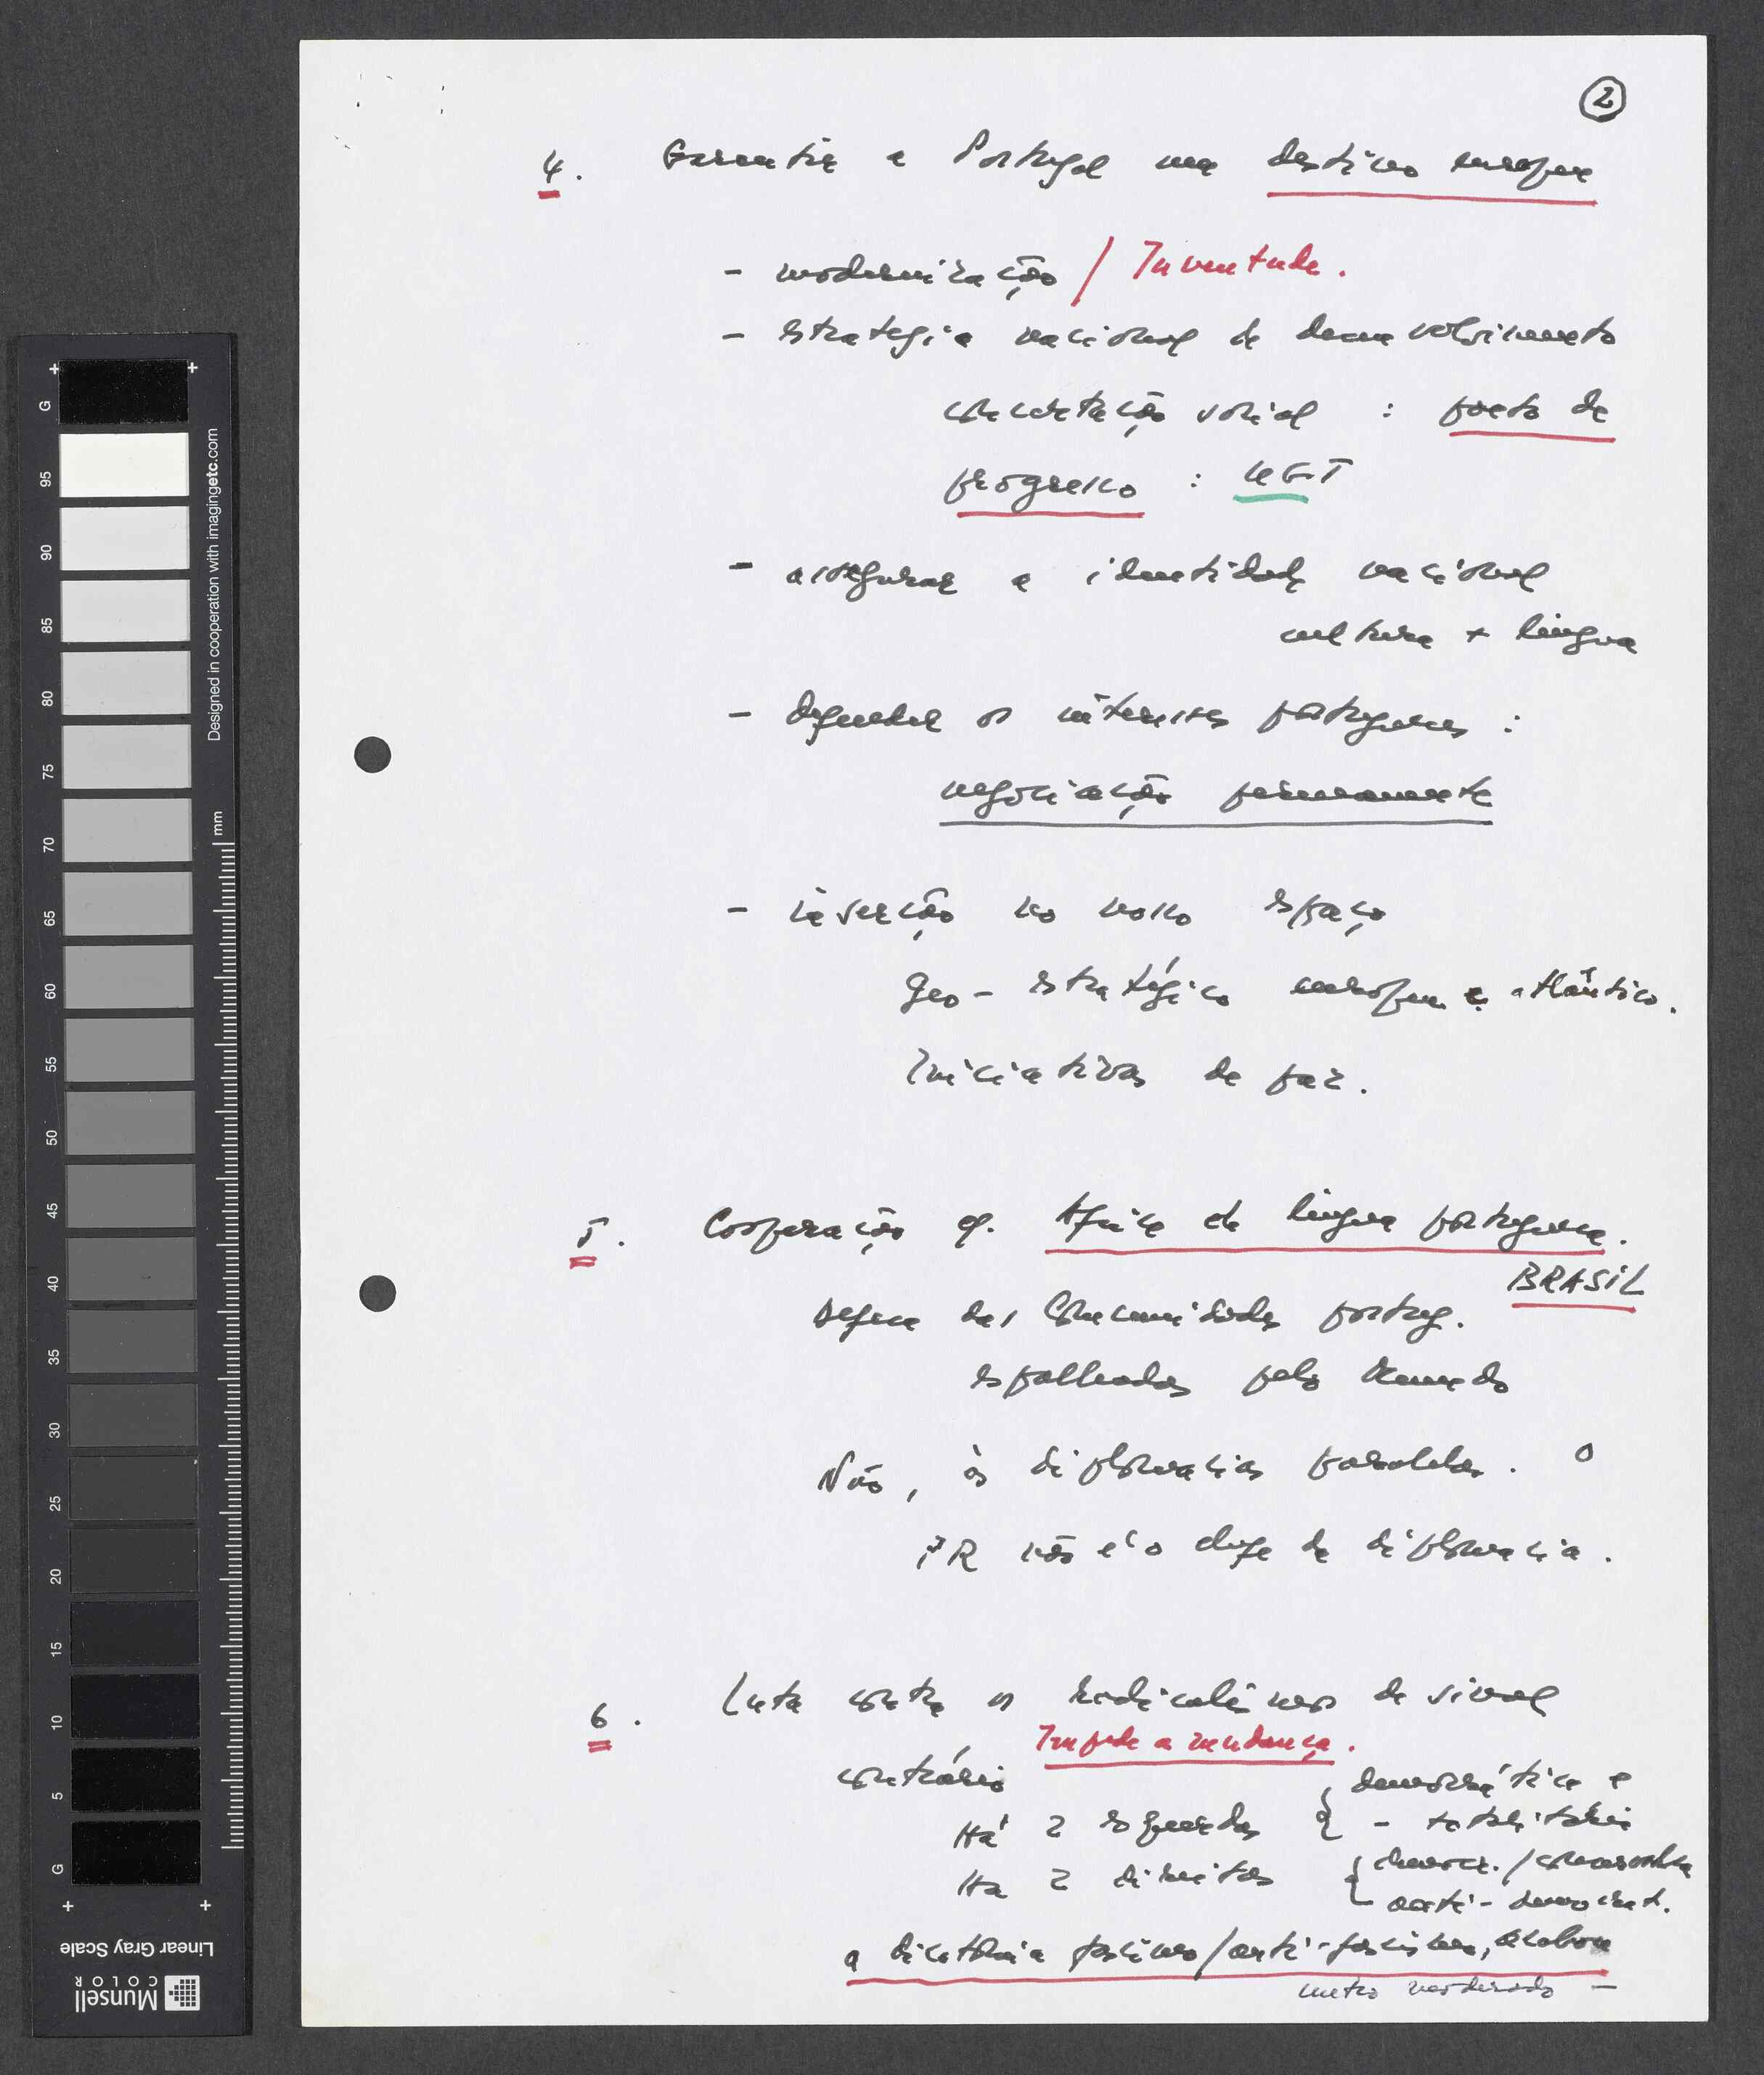 2
4. Garantir a Portugal um destino europeu
- modernização / Juventude.
- estrategia nacional de desenvolvimento
concertação social : pacto de
progresso : UGT
- assegurar a identidade nacional
cultura + lingua
- defender os interesses portugueses :
negociação permanente
- inserção no nosso espaço
geo-estratégico europeu e atlântico.
Iniciativas de paz.
5. Cooperação c/. Africa de lingua portuguesa.
BRASIL
Defesa das Comunidades portug.
espalhadas pelo Mundo
Não, às diplomacias paralelas. O
PR não é o chefe da diplomacia.
6. Luta contra os radicalismos de sinal
Impede a mudança.
contrário
Há 2 esquerdas { democrática e
- totalitária
Ha 2 direitas { democr. / conservadora
anti-democrat.
a dicotomia fascismo/anti-fascismo, acabou
centro moderado -
G 95 90 85 80 75 70 65 60 55 50 45 40 35 30 25 20 15 10 5 G
Designed in cooperation with imagingetc.com
mm
Linear Gray Scale
Munsell
COLOR